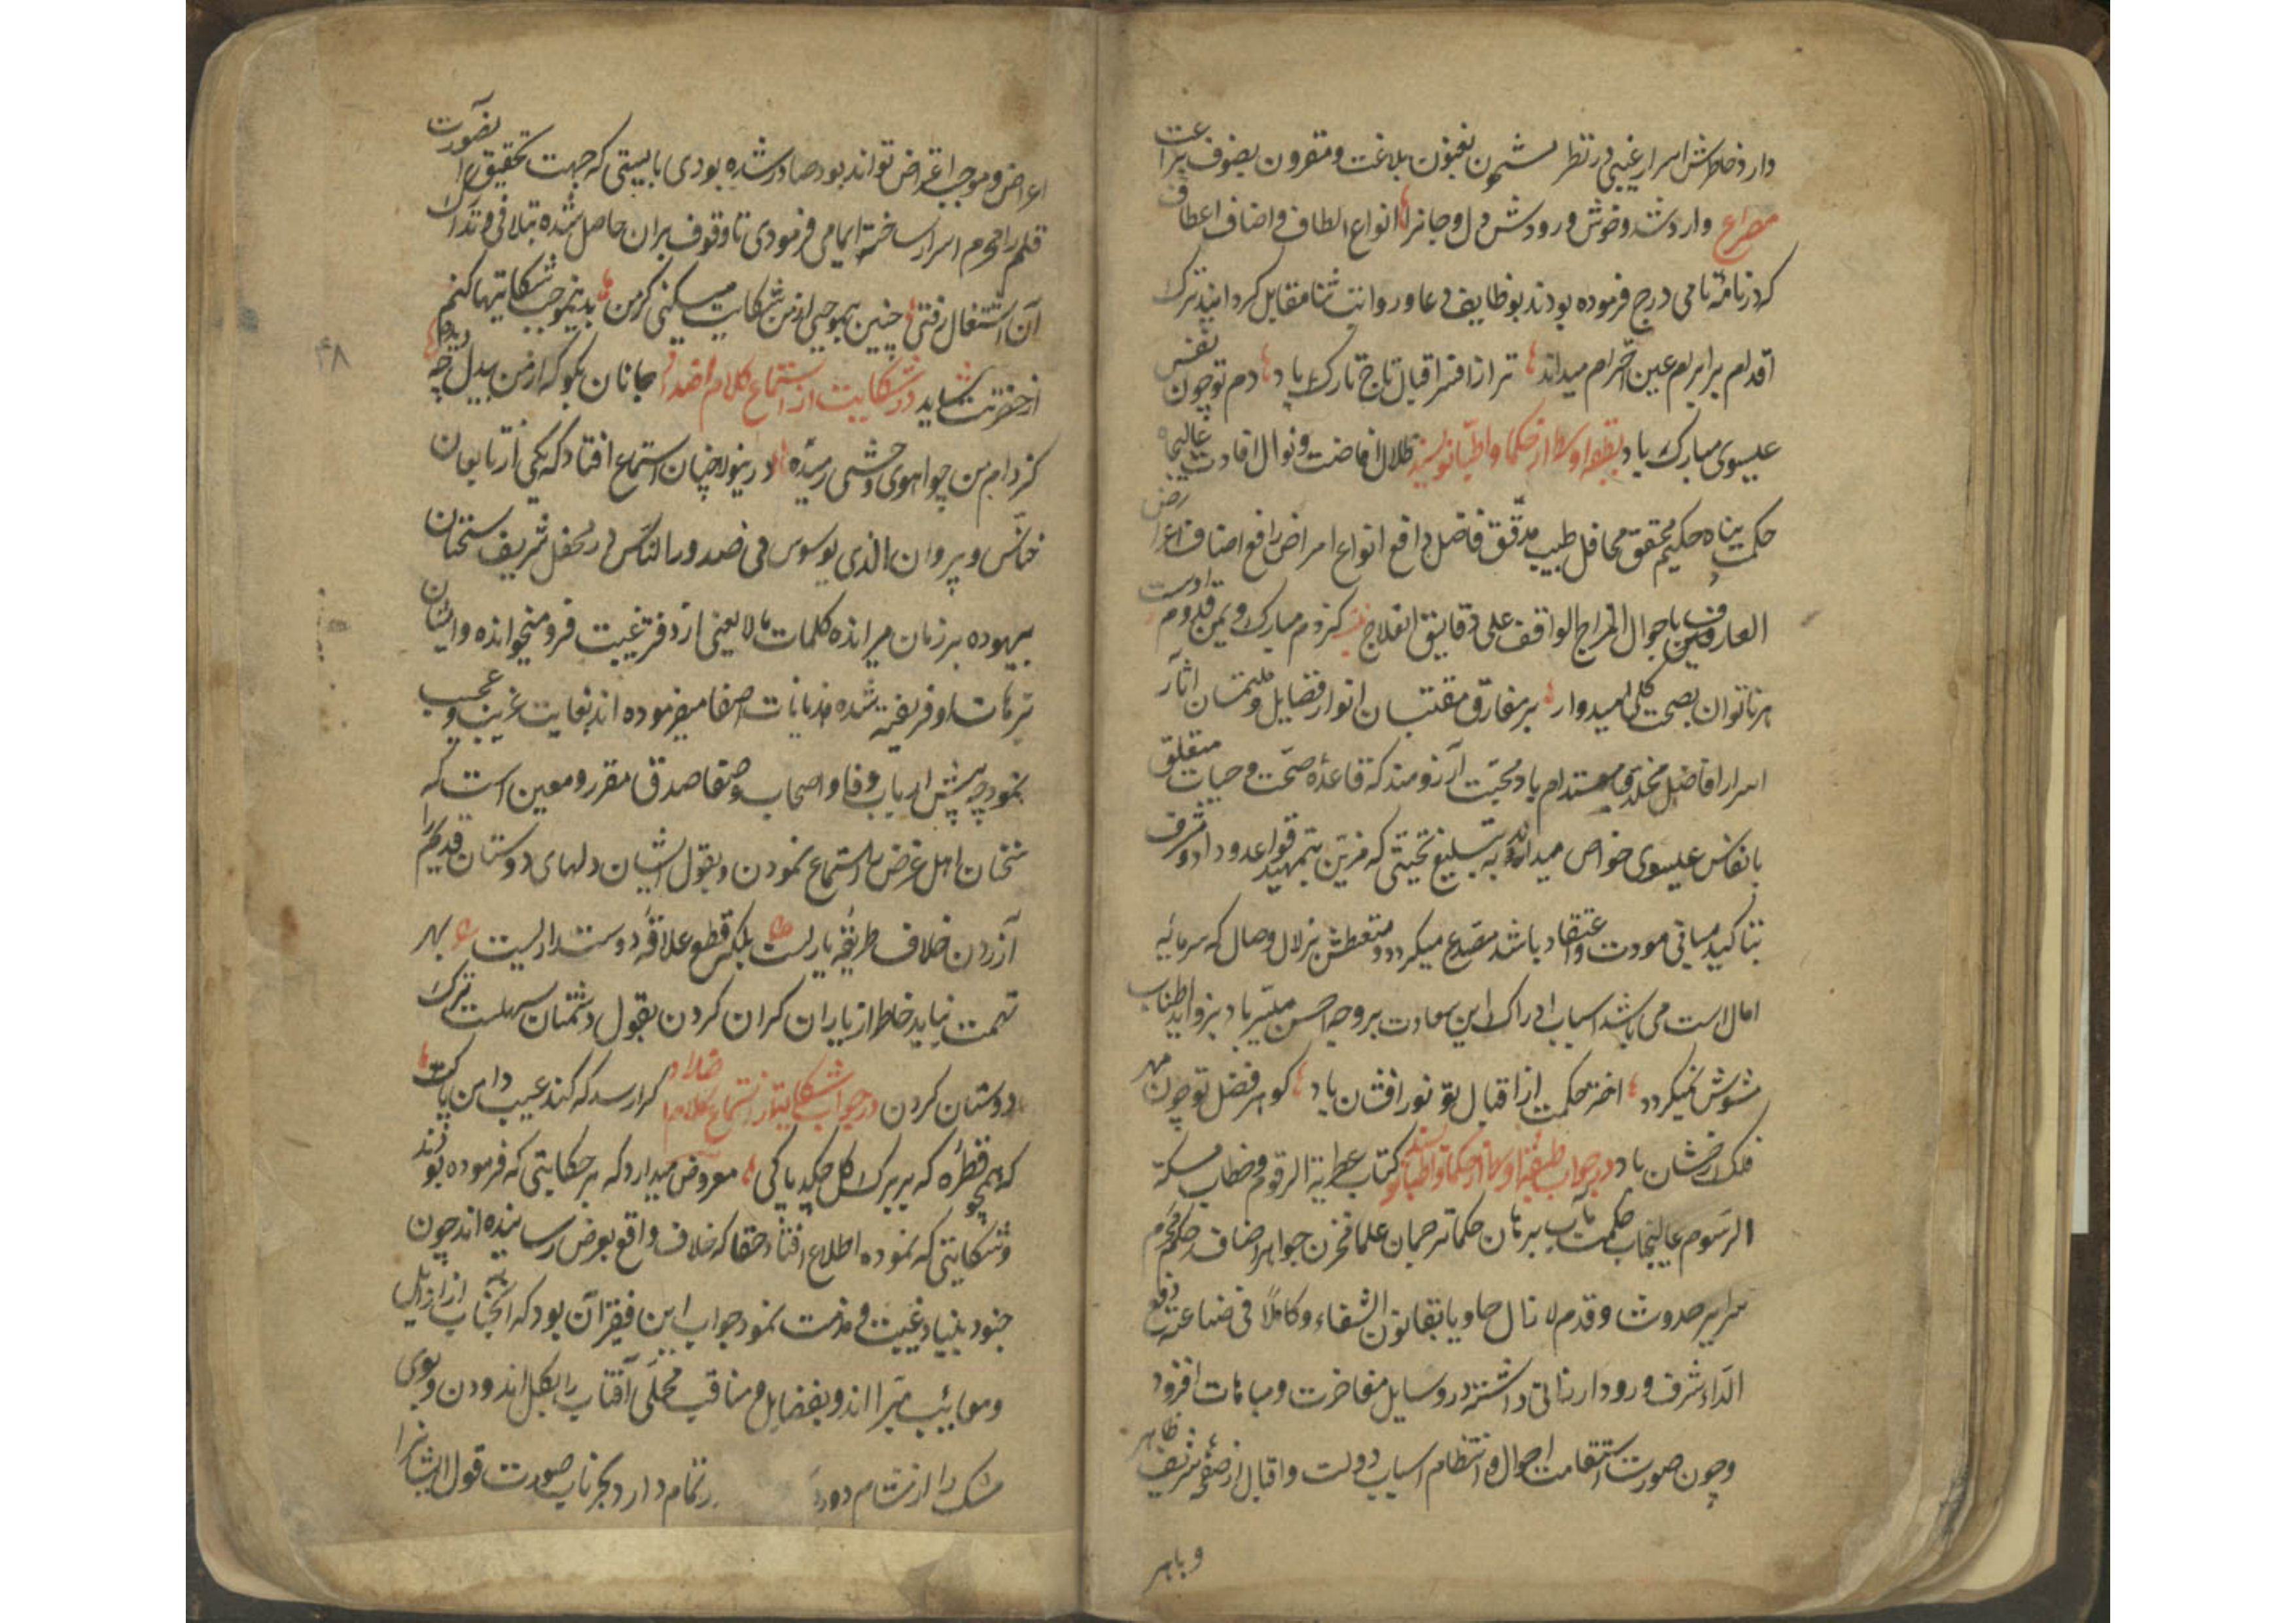 دارد خاطرش اسرار غیبی در نظر مشحون بفنون بلاغت و مقرون بصنوف براعت
مصراع وارد شد و خوش ورودش دل و جانرا انواع الطاف و اصناف اعطاف
که در نامه نامی درج فرموده بودند بوظایف دعا و روایت ثنا مقابل گردانید ترک
اقدام بر ابرام عین احترام میداند ترا از افسر اقبال تاج تارک باد دم تو چون نفس
عیسوی مبارک باد بطبقه اوسط از حکما و اطبا نویسند ظلال افاضت و نوال افادت عالیجاه
حکمت پناه حکیم محقق محافل طبیب مدقق فاضل دافع انواع امراض رافع اصناف اعراض
العارف باحوال المزاج الواقف علی دقایق العلاج کز دم مبارک و یمن قدوم اوست
هر ناتوان بصحت کلی امیدوار بر مفارق مقتبسان انوار فضایل و ملتمسان آثار
اسرار افاضل مخلد و مستدام باد محبت آرزومند که قاعده صحت و حیات متعلق
بانفاس عیسوی خواص میداند به تبلیغ تحیتی که مزین بتمهید قواعد وداد و شرف
بتاکید مبانی مودت و اعتقاد باشد مصدع میگردد و متعطش زلال وصال که سرمایه
امال است می باشد اسباب ادراک این سعادت بر وجه احسن میسر باد بزواید اطناب
مشوش نمیگردد اختر حکمت از اقبال تو نور افشان باد گوهر فضل تو چون مهر
فلک رخشان باد در جواب طبقه اوسط از حکما و اطبا نویسند کتاب عطریة الرقوم و خطاب مسکیة
الرسوم عالیجناب حکمت مآب برهان حکما ترجمان علما مخزن جواهر اصناف حکم محرم
سرایر حدوث و قدم لا زال حاویا بقانون الشفاء و کاملا فی صناعة دفع
الداء شرف ورود ارزانی داشته در وسایل مفاخرت و مباهات افزود
و چون صورت استقامت احوال و انتظام اسباب دولت و اقبال از صفحه شریف ظاهر
و باهر
اعراض و موجب اعتراض تواند بود صادر شده بودی بایستی که جهت تحقیق بصورت
قلم را محرم اسرار ساخته ایمایی فرمودی تا وقوف بران حاصل شده بتلافی و تدارک
آن اشتغال رفتی چنین بی موجبی از من شکایت میکنی کز من بدین موجب شکایتها کنم
از حضرتت شاید در شکایت از استماع کلام اضداد جانان بگو که از من بیدل چه دیده
کز دام من چو آهوی وحشی رمیده درینولا چنان استماع افتاد که یکی از تابعان
خناس و پیروان الذی یوسوس فی صدور الناس در محفل شریف سخنان
بیهوده بر زبان میرانده کلمات مالایعنی از دفتر غیبت فرو میخوانده و ایشان
بترهات او فریفته شده هذیانات اصغا میفرموده اند بغایت غریب و عجیب
نمود چه پیش ارباب وفا و اصحاب صفا صدق مقرر و معین است که
سخنان اهل غرض را استماع نمودن و بقول ایشان دلهای دوستان قدیم را
آزردن خلاف طریقه یاریست بلکه قطع علاقه دوستداریست بهر
تهمت نباید خاطر از یاران گران کردن بقول دشمنان سهلست ترک
دوستان کردن در جواب شکایت از استماع کلام اضداد کرا رسد که کند عیب دامن پاکت
که همچو قطره که بر برگ گل چکد پاکی معروض میدارد که بر حکایتی که فرموده بودند
و شکایتی که نموده اطلاع افتاد حقا که خلاف واقع بعرض رسانیده اند چون
حسود بنیاد غیبت و مذمت نمود جواب این فقیر آن بود که آنجناب از رذایل
و معائب مبرا اند و بفضایل و مناقب محلی آفتاب را بگل اندودن و بوی
مشک را از مشام دور تمام دارد دیگر تا بصورت قول ایشانرا
۴۸